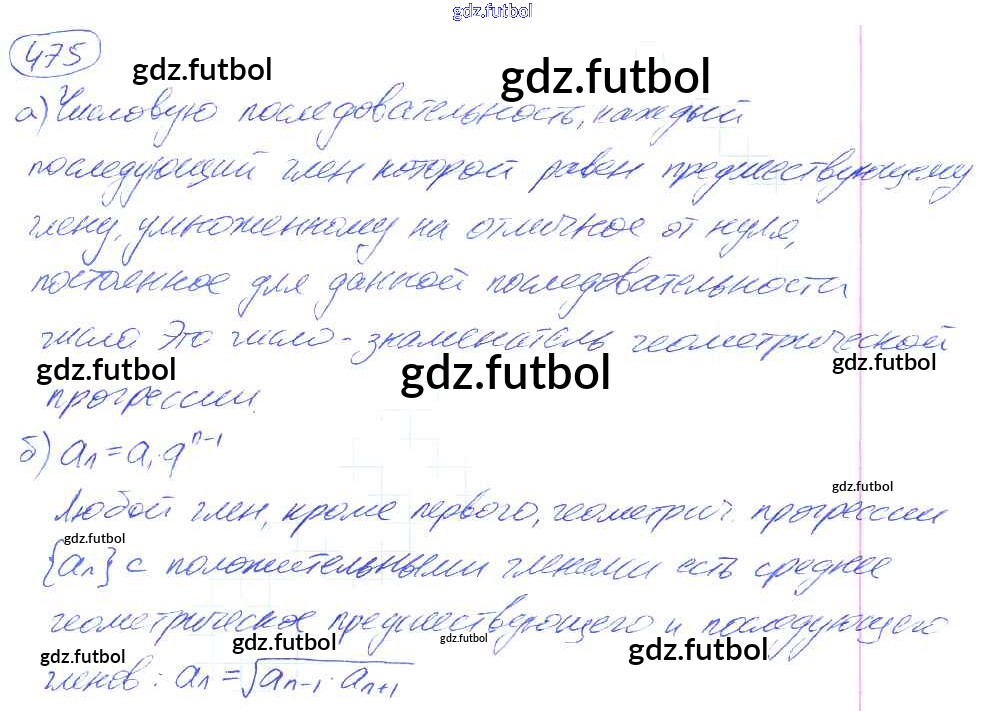 gdz.futbol
475
gdz.futbol gdz.futbol
а) Числовую последовательность, каждый
последующий член которой равен предшествующему
члену, умноженному на отличное от нуля,
постоянное для данной последовательности
числа Это число - знаменатель геометрической
gdz.futbol gdz.futbol gdz.futbol
прогрессии.
б) aₙ = a₁·qⁿ⁻¹
gdz.futbol
Любой член, кроме первого, геометрич. прогрессии
gdz.futbol
{aₙ} с положительными членами есть среднее
геометрическое предшествующего и последующего
gdz.futbol gdz.futbol gdz.futbol gdz.futbol
членов: aₙ = √aₙ₋₁·aₙ₊₁